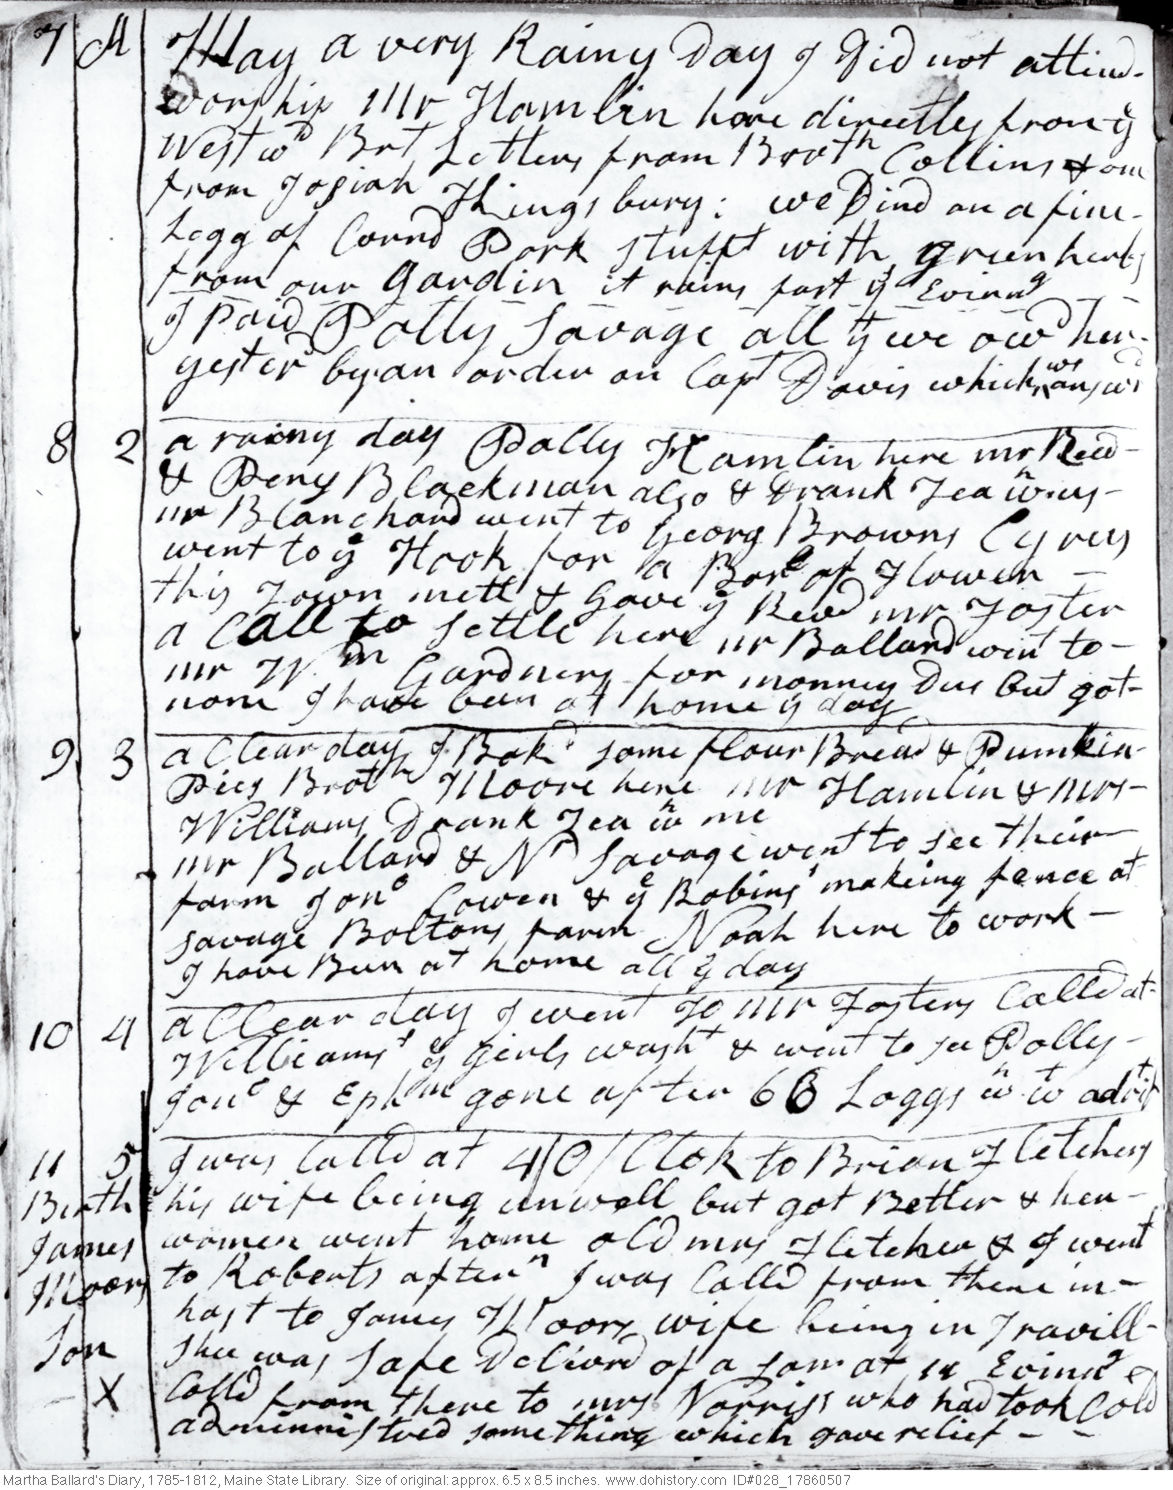 7 A May a very Rainy Day I Did not attind-
worship Mr Hamlin here directly from ye
West wd Brt Letters from Broth Collins & one
from Josiah Kingsbury: we Dind on a fine-
Legg of Cornd Pork stufft with green herbs
from our gardin it rains fast ye Evinng
I Paid Polly Savage all yt we owd her-
yesterd by an order on Capt Davis which was answrd
8 2 a rainy day Polly Hamlin here mr Bew-
& Peny Blackman also & Drank Tea wn us-
mr Blanchard went to Georg Browns Cyrus
went to ye Hook for a Bare of Flower -
this Town mett & Gave ye Revd mr Foster
a Call to settle here mr Ballard went to-
mr Wm Gardners for monney Due but got-
none I have been at home ye day
9 3 a Clear day I Bakt some flour Bread & Pumkin-
Pies Broth Moore here mr Hamlin & Mrs-
Williams Drank Tea wn me
mr Ballard & Nd Savage went to see their
farm Jono Cowen & ye Robins' making fence at
savage Boltons farm Noah here to work -
I have Been at home all ye day
10 4 a Clear day I went to mr Fosters Calld at-
Williams' ye girls washt & went to see Polly-
Jono & Ephm gone after 66 Loggs wn to advit
11 5 I was Calld at 4 O Clok to Brian Fletchers
Birth his wife being unwell but got Better & her-
James women went home old mrs Fletcher & I went
Moors to Roberts aftern I was Calld from there in-
hast to James Moors wife being in Travill-
Son Shee was safe Delivrd of a son at 11 Evinng &
- X Calld from there to mrs Norriss who had took Cold
adminnistred something which gave relief - -
Martha Ballard's Diary, 1785-1812, Maine State Library. Size of original: approx. 6.5 x 8.5 inches. www.dohistory.com ID#028_17860507